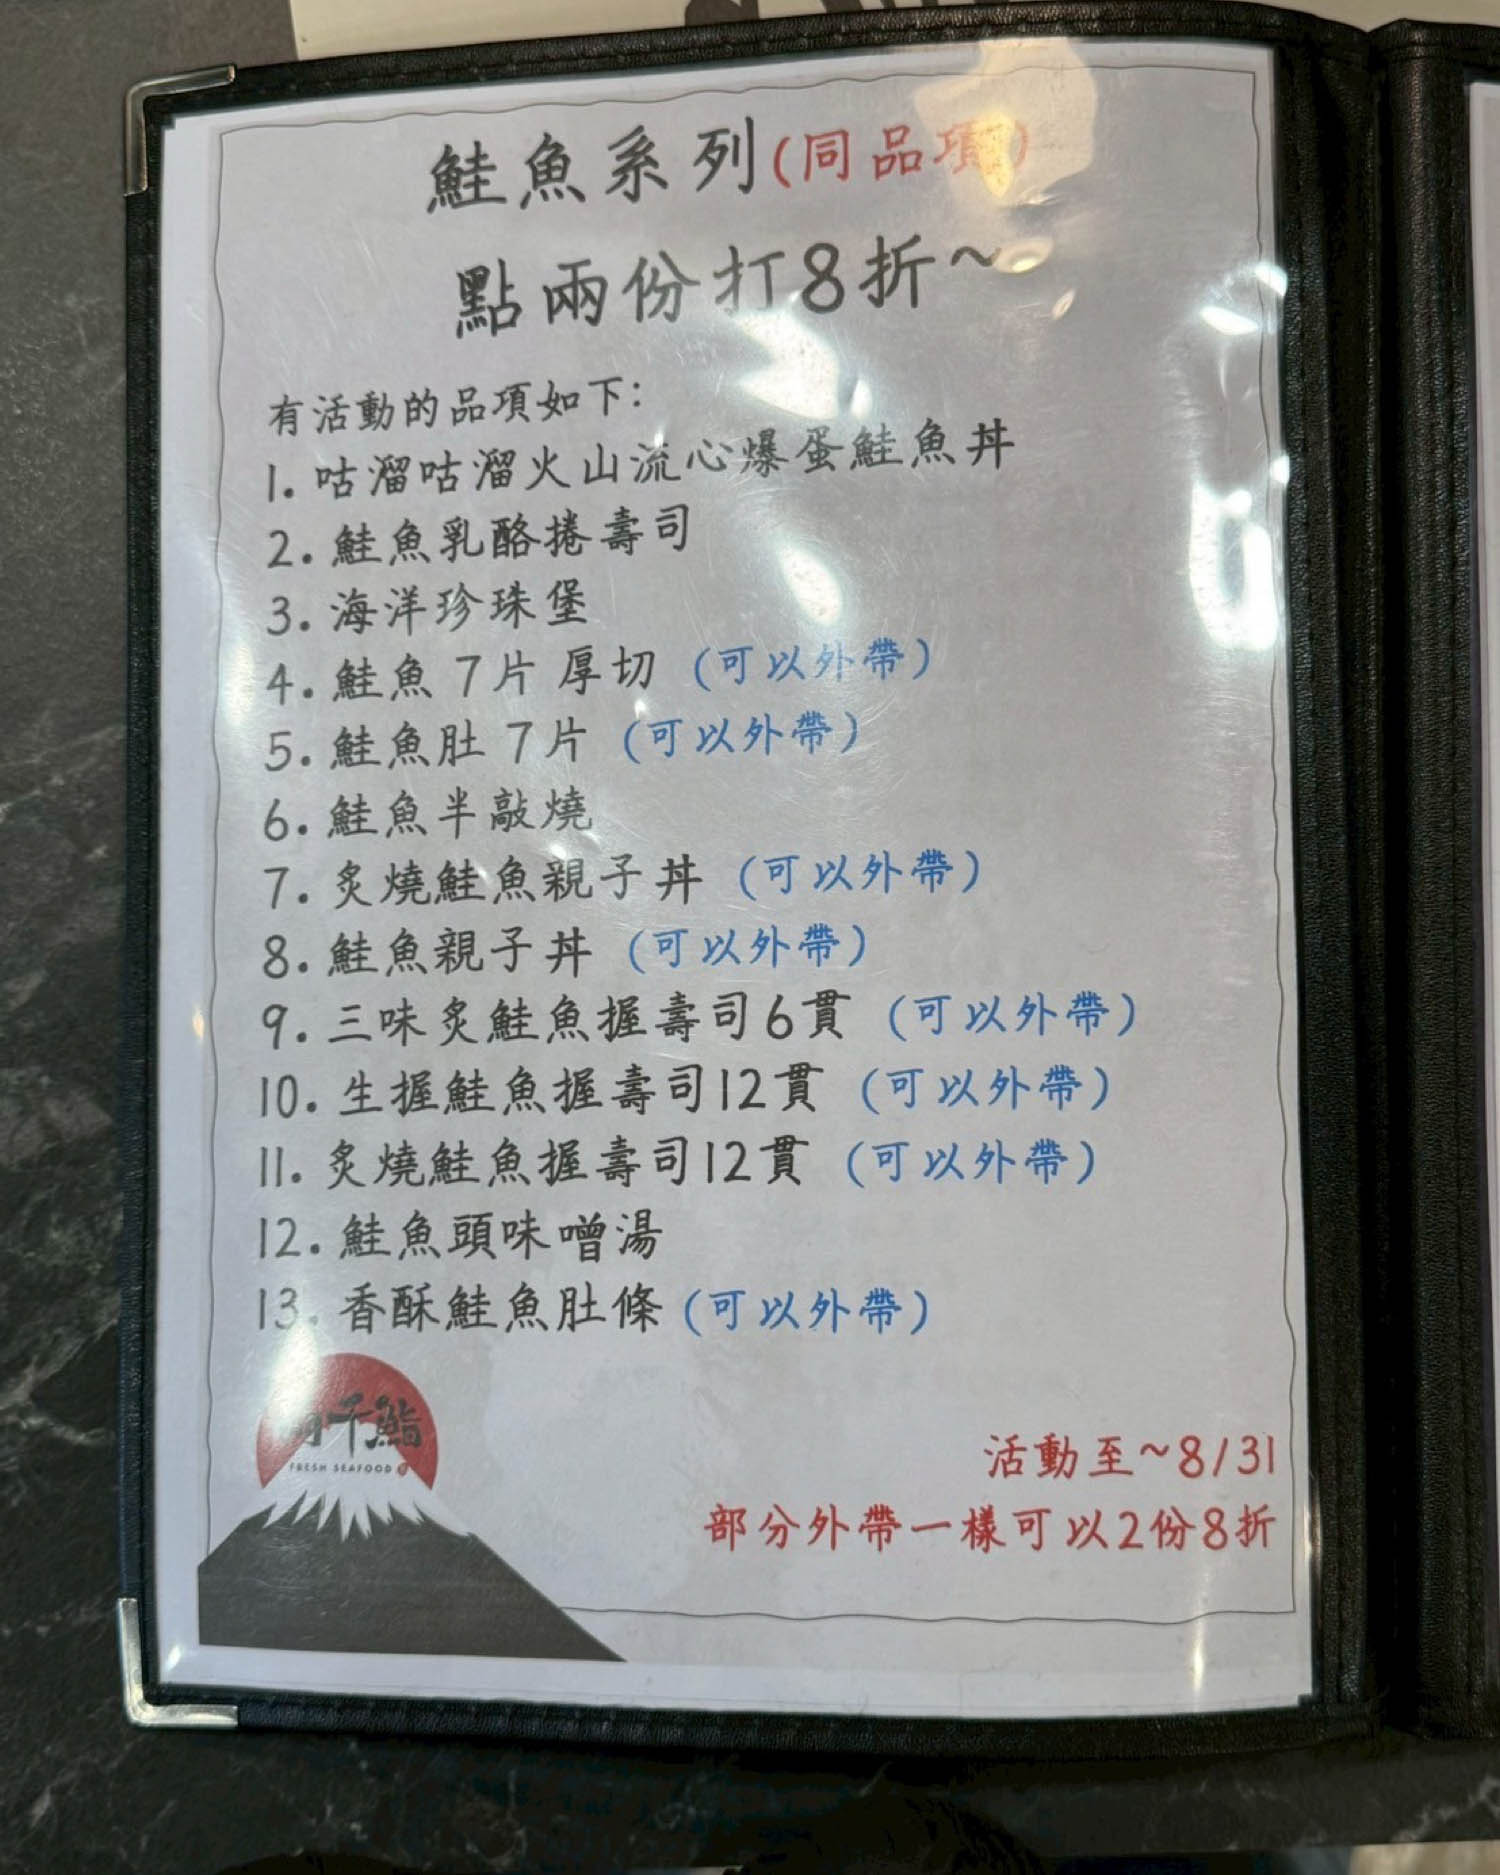 鮭魚系列(同品項)
點兩份打8折~
有活動的品項如下:
1. 咕溜咕溜火山流心爆蛋鮭魚丼
2. 鮭魚乳酪捲壽司
3. 海洋珍珠堡
4. 鮭魚 7片 厚切 (可以外帶)
5. 鮭魚肚 7片 (可以外帶)
6. 鮭魚半敲燒
7. 炙燒鮭魚親子丼 (可以外帶)
8. 鮭魚親子丼 (可以外帶)
9. 三味炙鮭魚握壽司6貫 (可以外帶)
10. 生握鮭魚握壽司12貫 (可以外帶)
11. 炙燒鮭魚握壽司12貫 (可以外帶)
12. 鮭魚頭味噌湯
13. 香酥鮭魚肚條 (可以外帶)
千鮨
FRESH SEAFOOD
活動至~8/31
部分外帶一樣可以2份8折